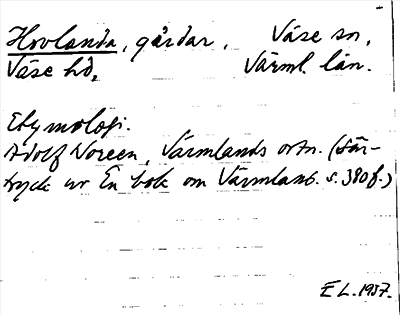 Hovlanda, gårdar, Väse sn,
Väse hd, Värml. län.
Etymologi.
Adolf Noreen, Värmlands ortn. (Sär-
tryck ur En bok om Värmland. s. 380 f.)
E L. 1937.